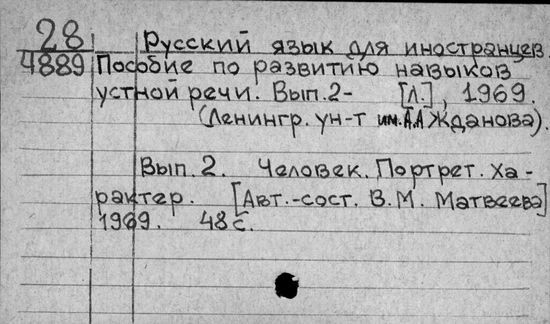 28
4889
Русский язык для иностранцев.
Пособие по развитию навыков
устной речи. Вып.2- [Л.], 1969.
(Ленингр. ун-т им. А.А Жданова).
Вып. 2. Человек. Портрет. Ха-
рактер. [Авт.-сост. В.М. Матвеева]
1969. 48 с.